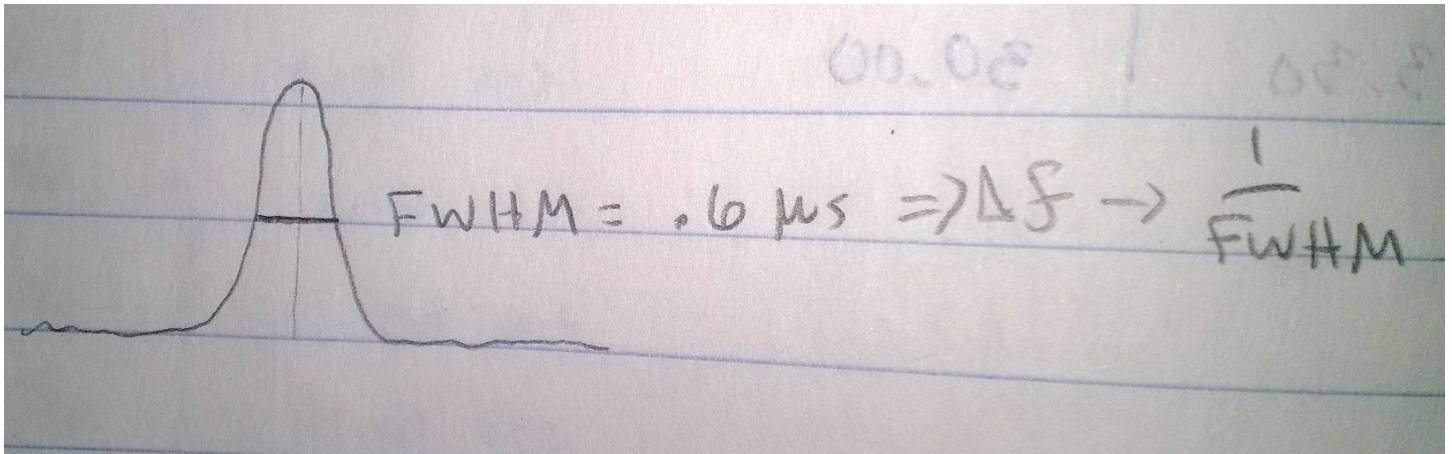 FWHM = .6 μs => Δf → 1/FWHM